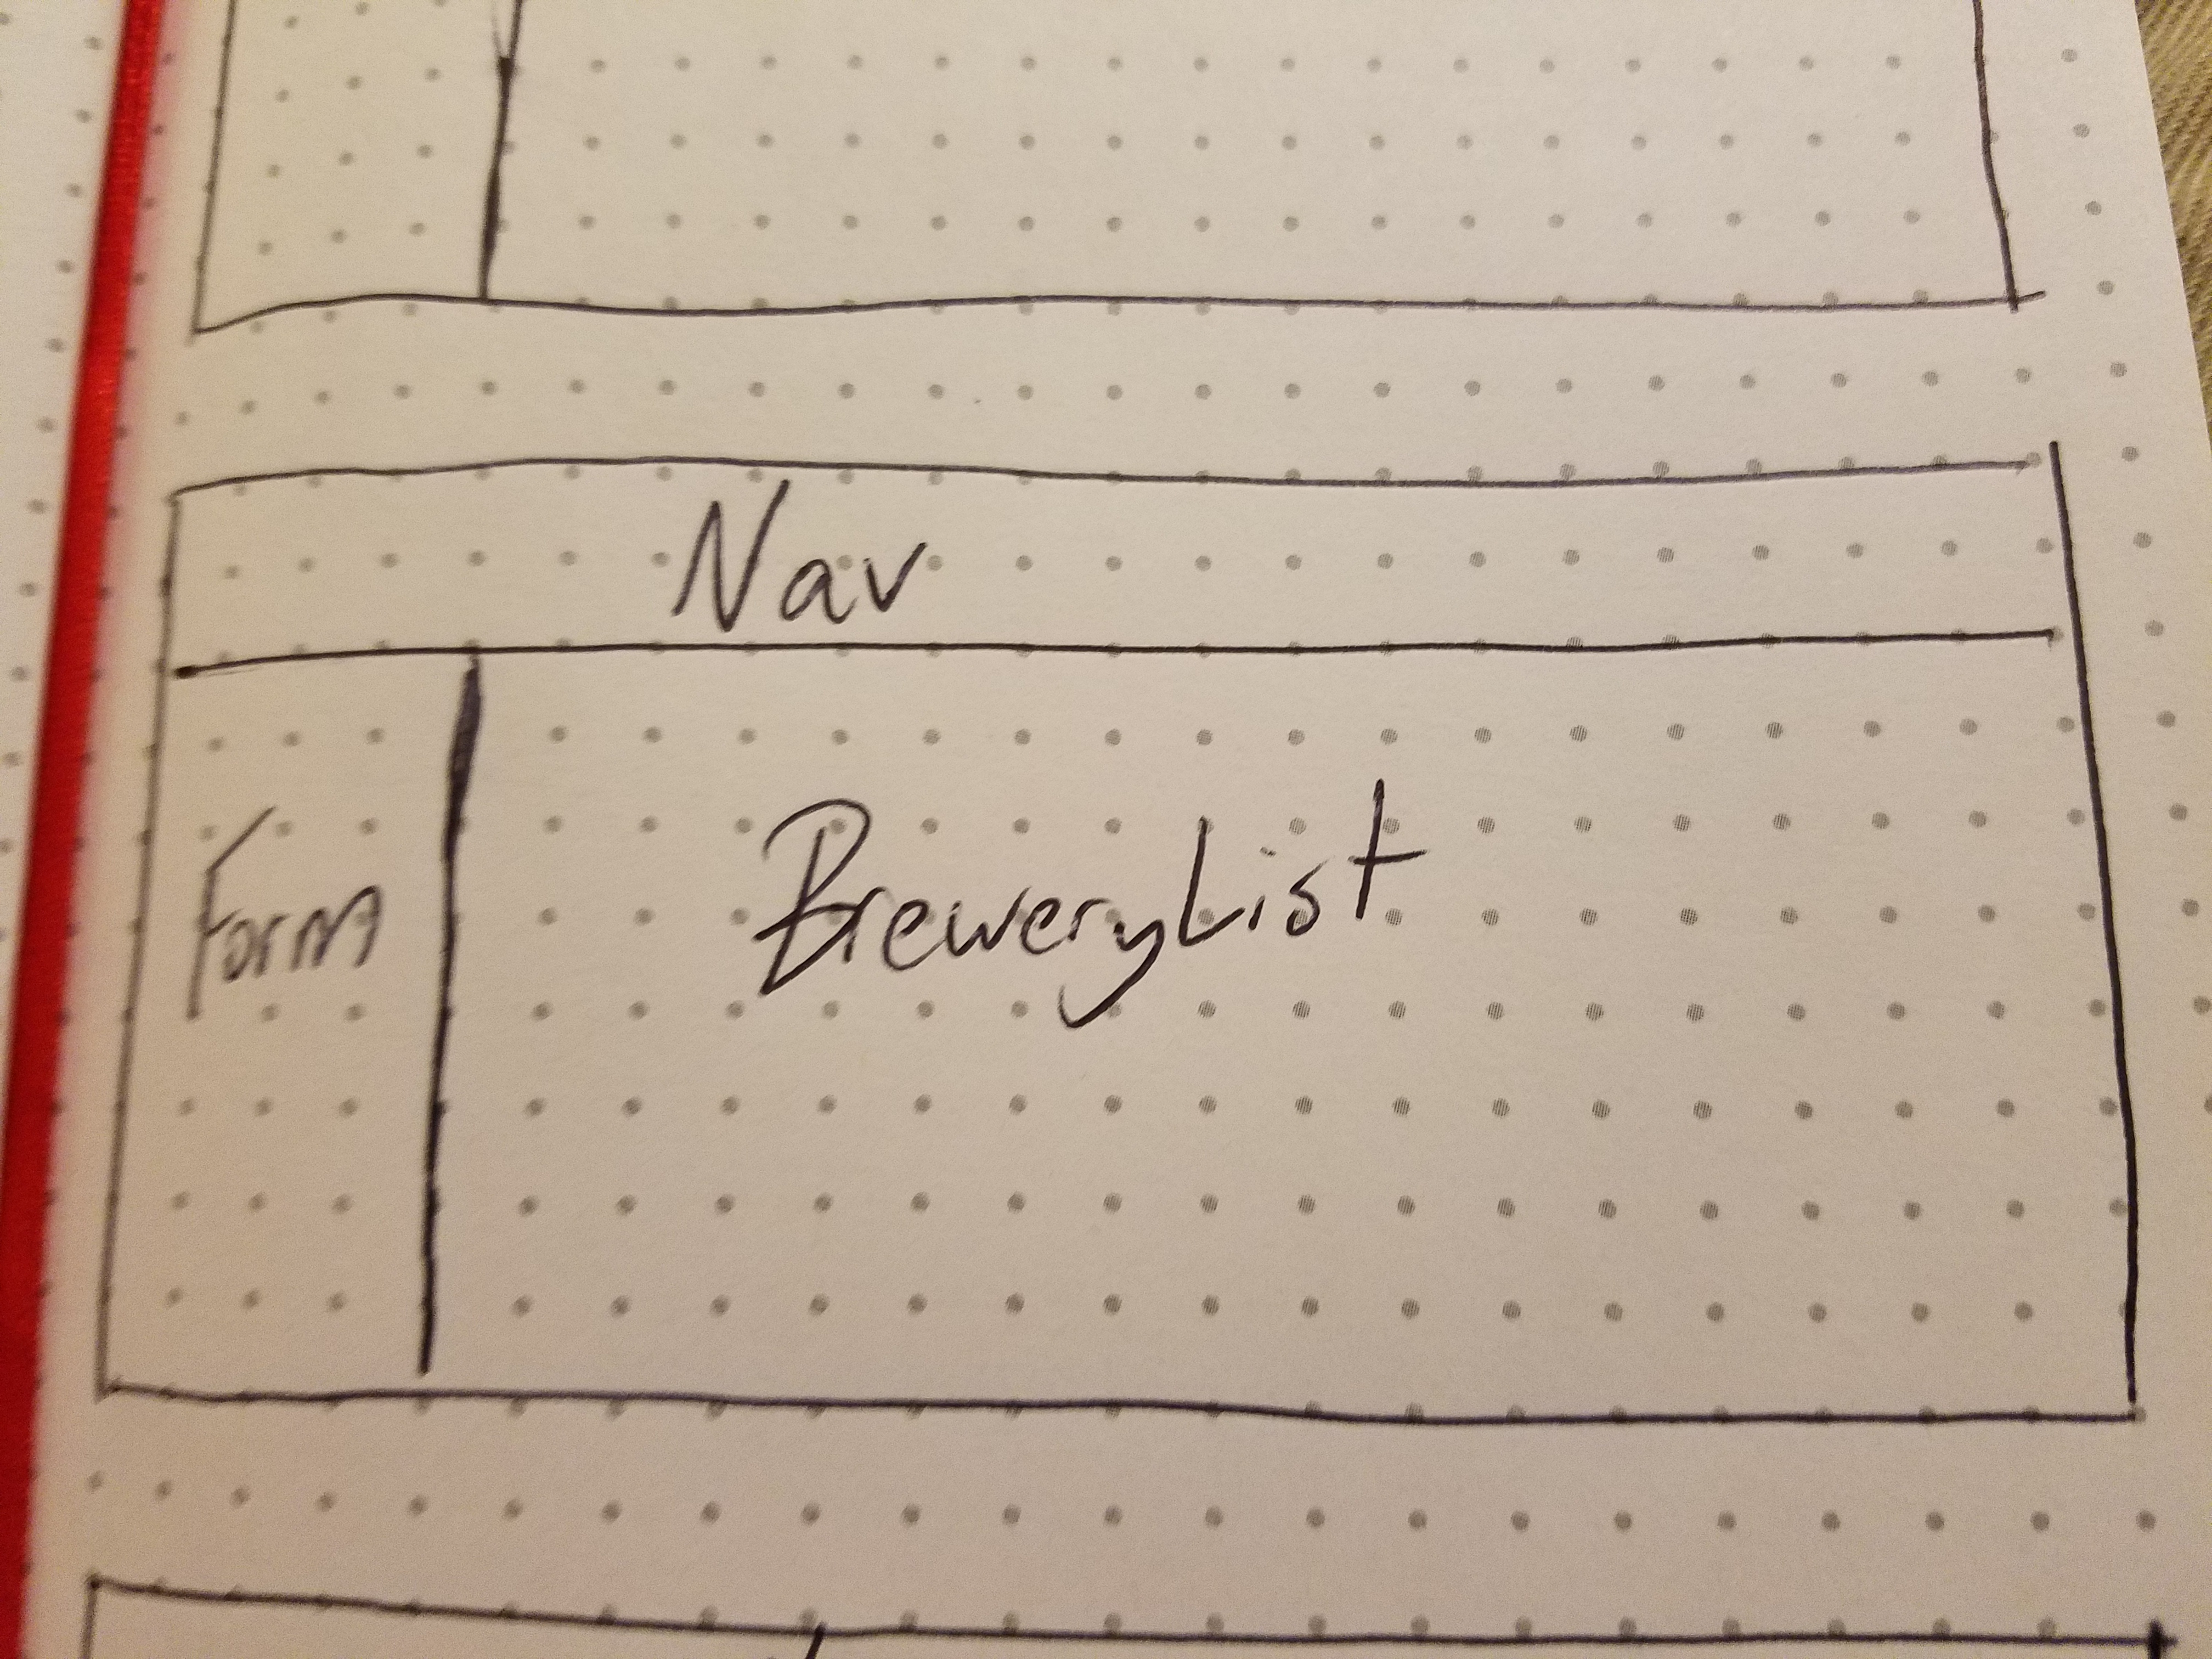 Nav
Form
BreweryList